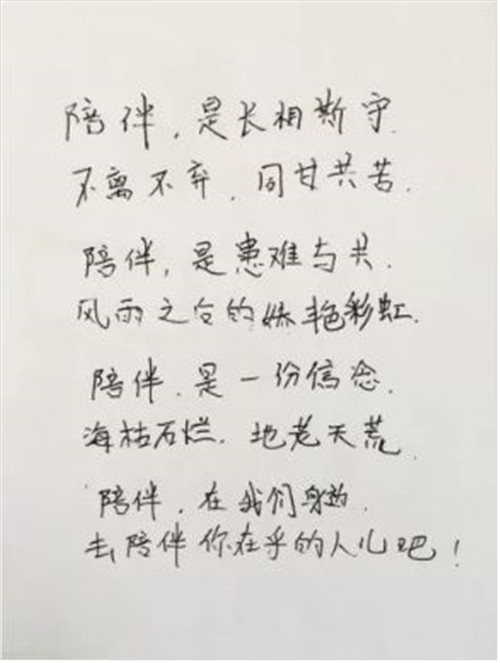 陪伴，是长相斯守.
不离不弃，同甘共苦.
陪伴，是患难与共.
风雨之后的娇艳彩虹.
陪伴，是一份信念.
海枯石烂，地老天荒
陪伴，在我们身边.
去陪伴你在乎的人儿吧！